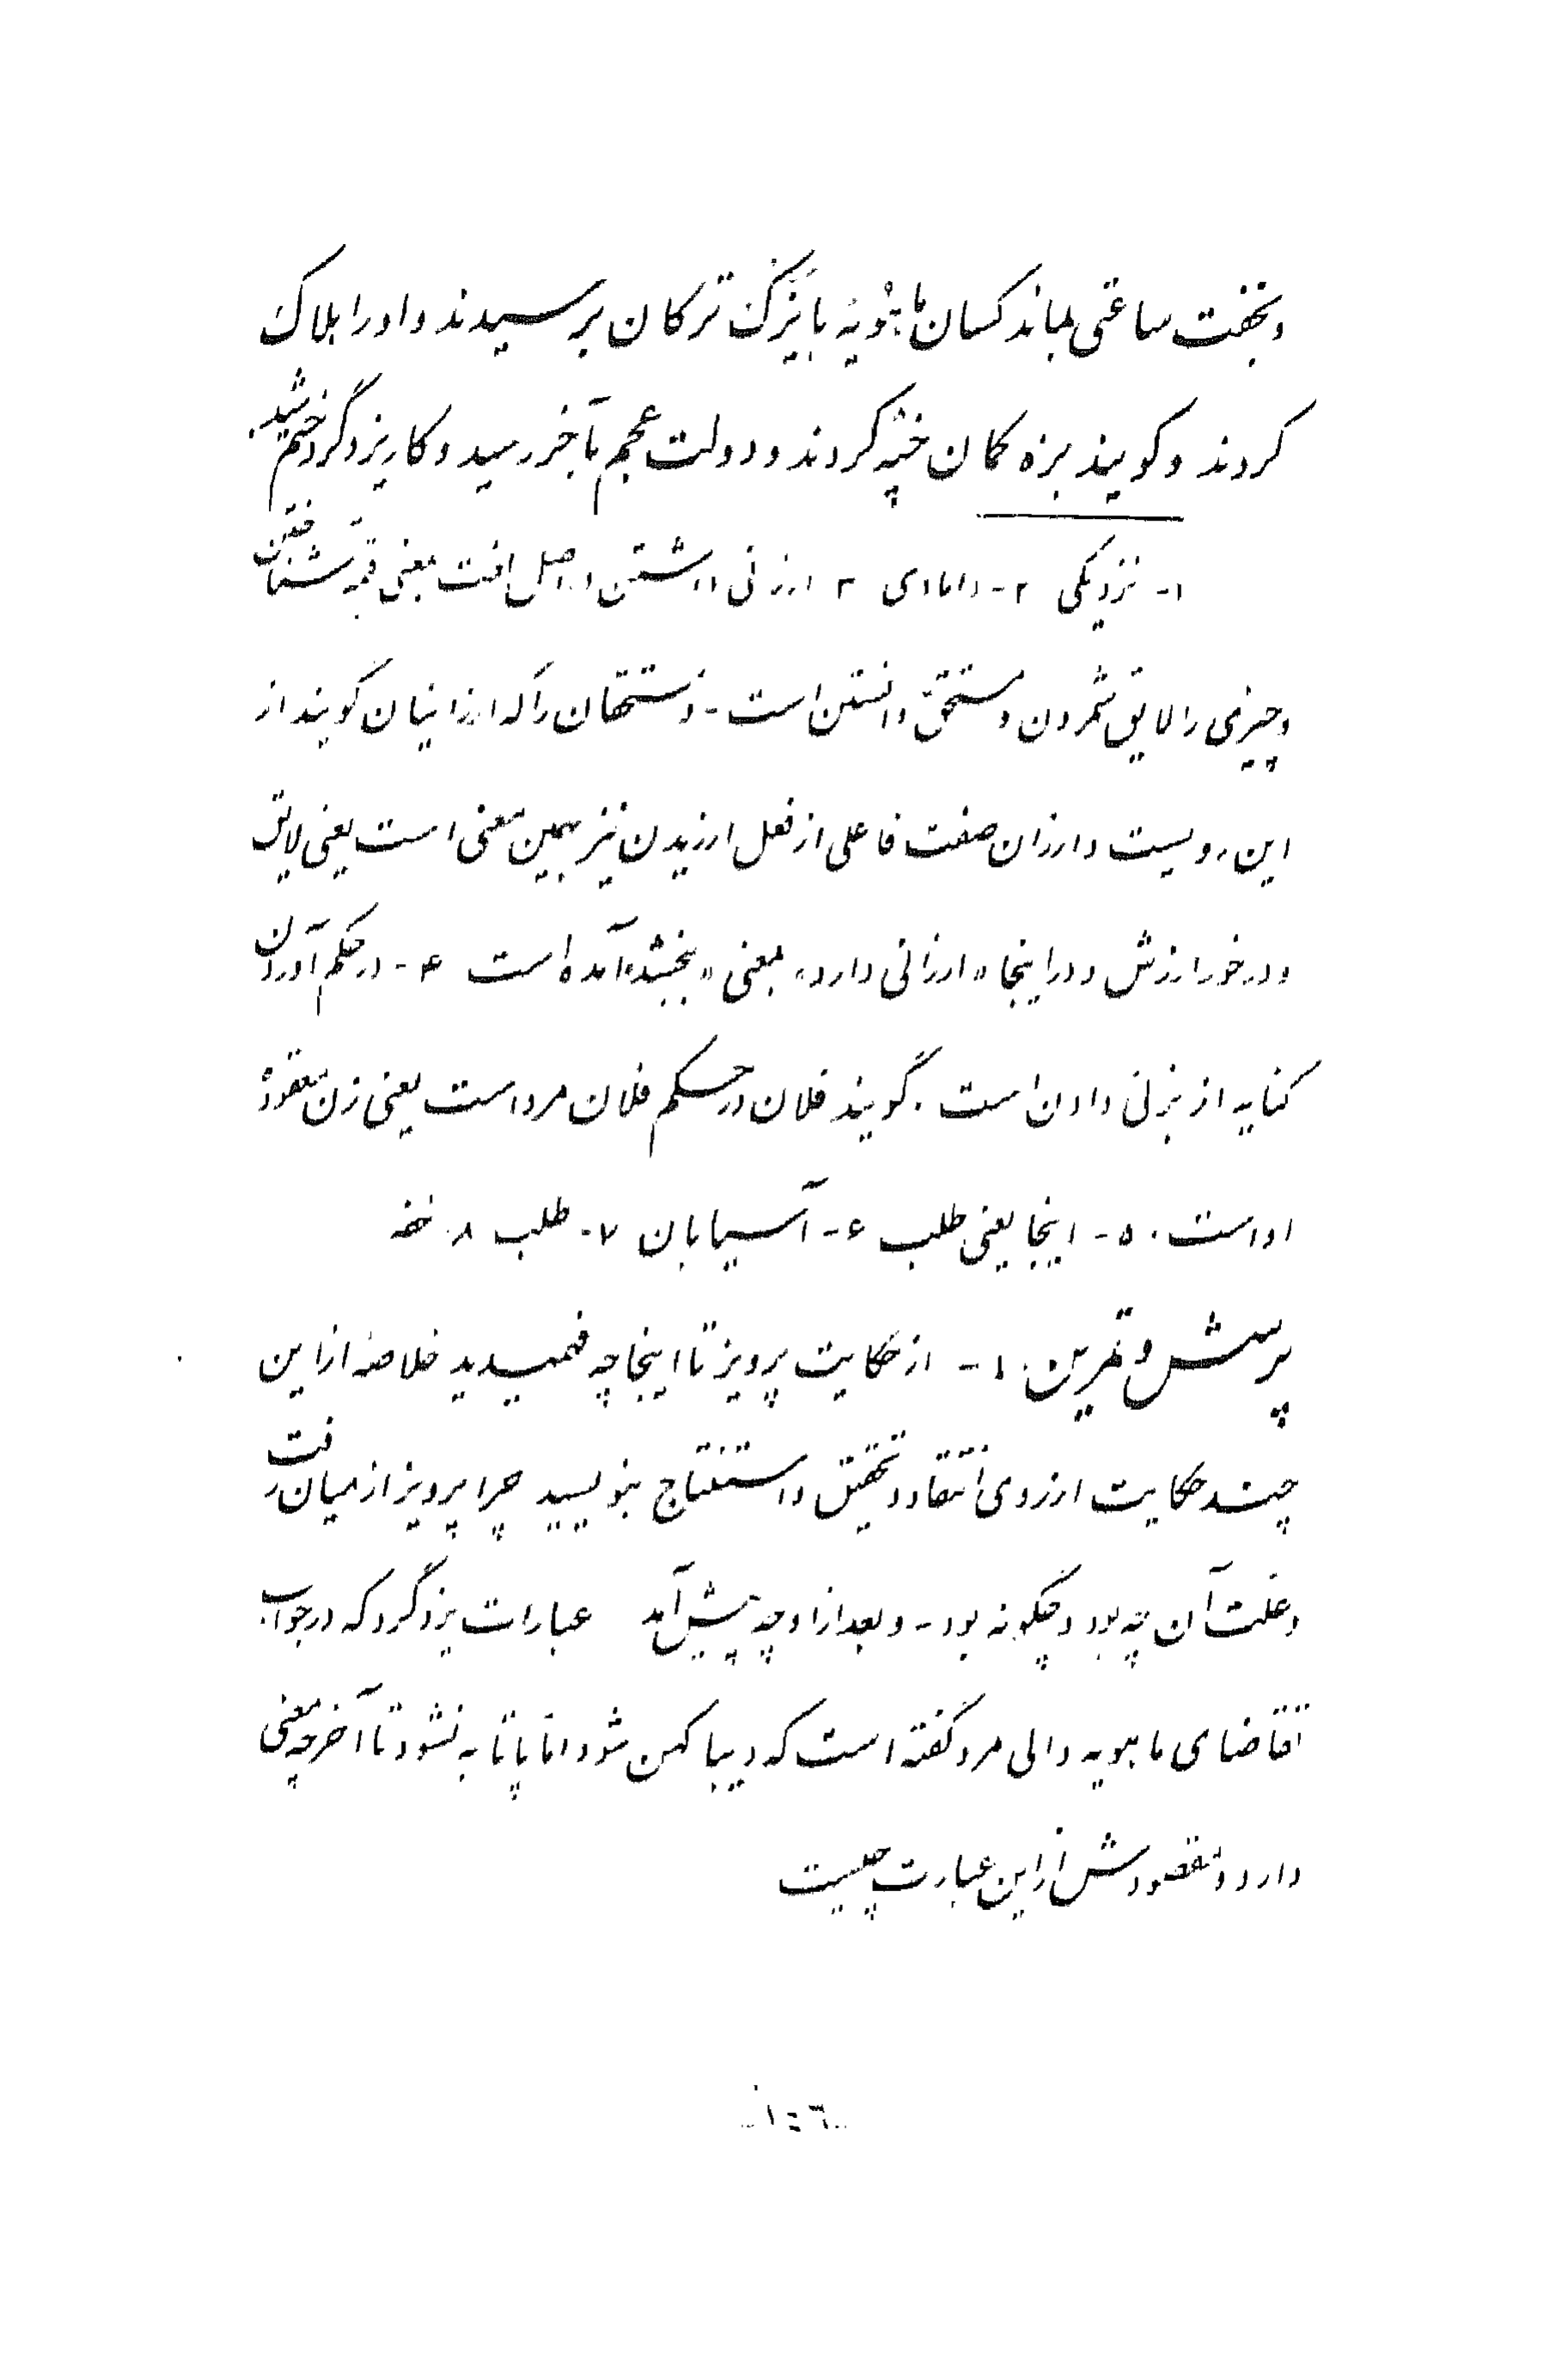 و بخفت ساعتی بماند کسان ماهُویَه با یَزَک ترکان برسیدند و او را هلاک
کردند و گویند بزه کمان خپه کردند و دولت عجم بآخر رسید و کار یزدگرد ختم شد.
۱- نزدیکی ۲- دامادی ۳ ارزانی داشتن در اصل لغت بمعنی قیمة شناختن
و چیزی را لایق شمردن و مستحق دانستن است - و مستحقان را که ارزانیان گویند از
این رویست و ارزان صفت فاعلی از فعل ارزیدن نیز بهمین معنی است یعنی لایق
و درخور ارزش و در اینجا «ارزانی دارد» بمعنی «ببخشد» آمده است ۴- در حکم آوردن
کنایه از بزنی دادن است. گویند فلان در حکم فلان مرد است یعنی زن معقودهٔ
او است. ۵- اینجا یعنی طلب ۶- آسیابان ۷- طلب ۸- خفه
پرسش و تمرین. ۱- از حکایت پرویز تا اینجا چه فهمیدید خلاصهٔ از این
چند حکایت از روی انتقاد و تحقیق و استنتاج بنویسید چرا پرویز از میان رفت
و علت آن چه بود و چگونه بود - و بعد از او چه پیش آمد عبارات یزدگرد که در جواب
تقاضای ماهویه والی مرو گفته است که دیبا کهن شود اما پاتابه نشود تا آخر چه معنی
دارد و مقصودش از این عبارت چیست